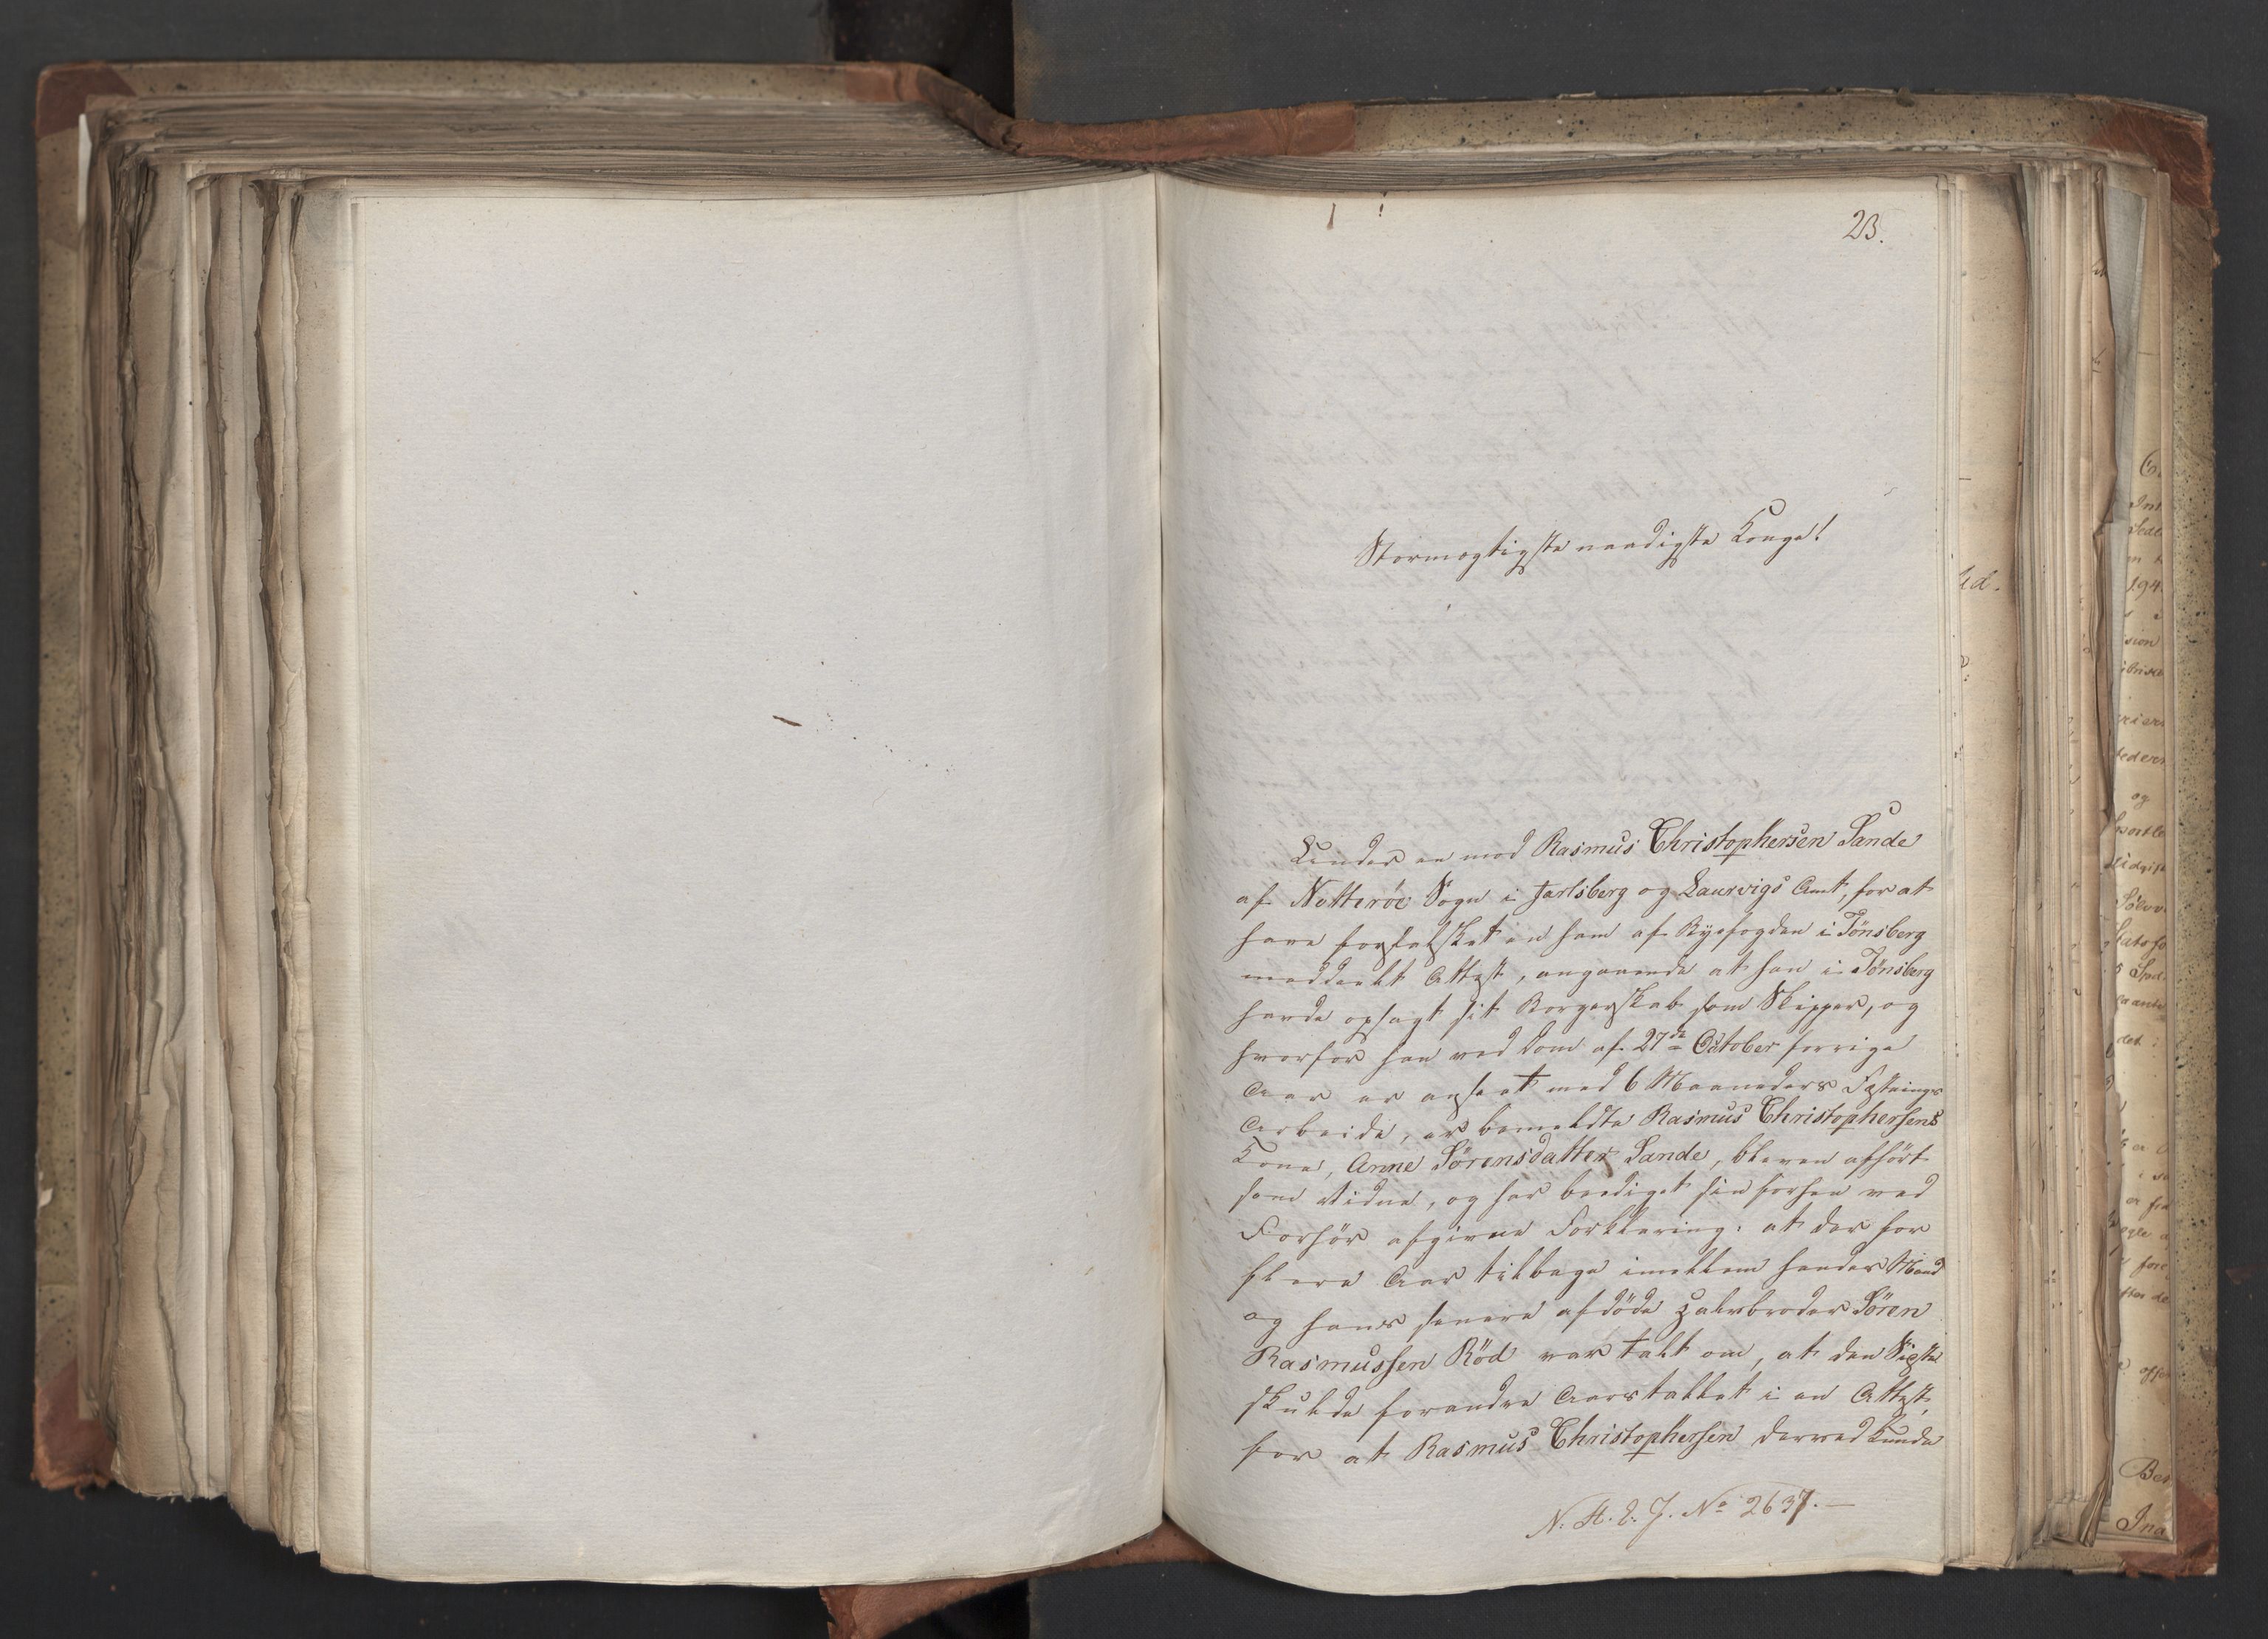 23.
Stormægtigste naadigste Konge!
Under en mod Rasmus Christophersen Sande
af Nøtterøe Sogn i Jarlsberg og Laurvigs Amt, for at
have forfalsket en ham af Byefogden i Tönsberg
meddeelt Attest, angaaende at han i Tönsberg
havde opsagt sit Borgerskab som Skipper, og
hvorfor han ved Dom af 27de October forrige
Aar er anseet med 6 Maaneders Fæstnings
Arbeide, er bemeldte Rasmus Christophersens
Kone, Anne Sörensdatter Sande, bleven afhört
som Vidne, og har beediget sin forhen ved
Forhör afgivne Forklaring: at der for
flere Aar tilbage imellem hendes Mand
og hans senere afdöde Halvbroder Sören
Rasmussen Röd var talt om, at den Sidste
skulde forandre Aarstallet i en Attest,
for at Rasmus Christophersen derved kunde
N. A. E. J. No 2637.—
Ed.